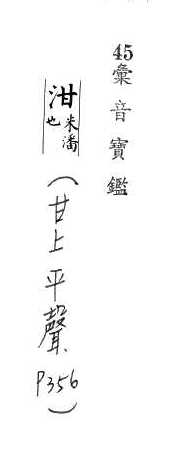 45彙音寶鑑
泔米潘也(甘上平聲P356)